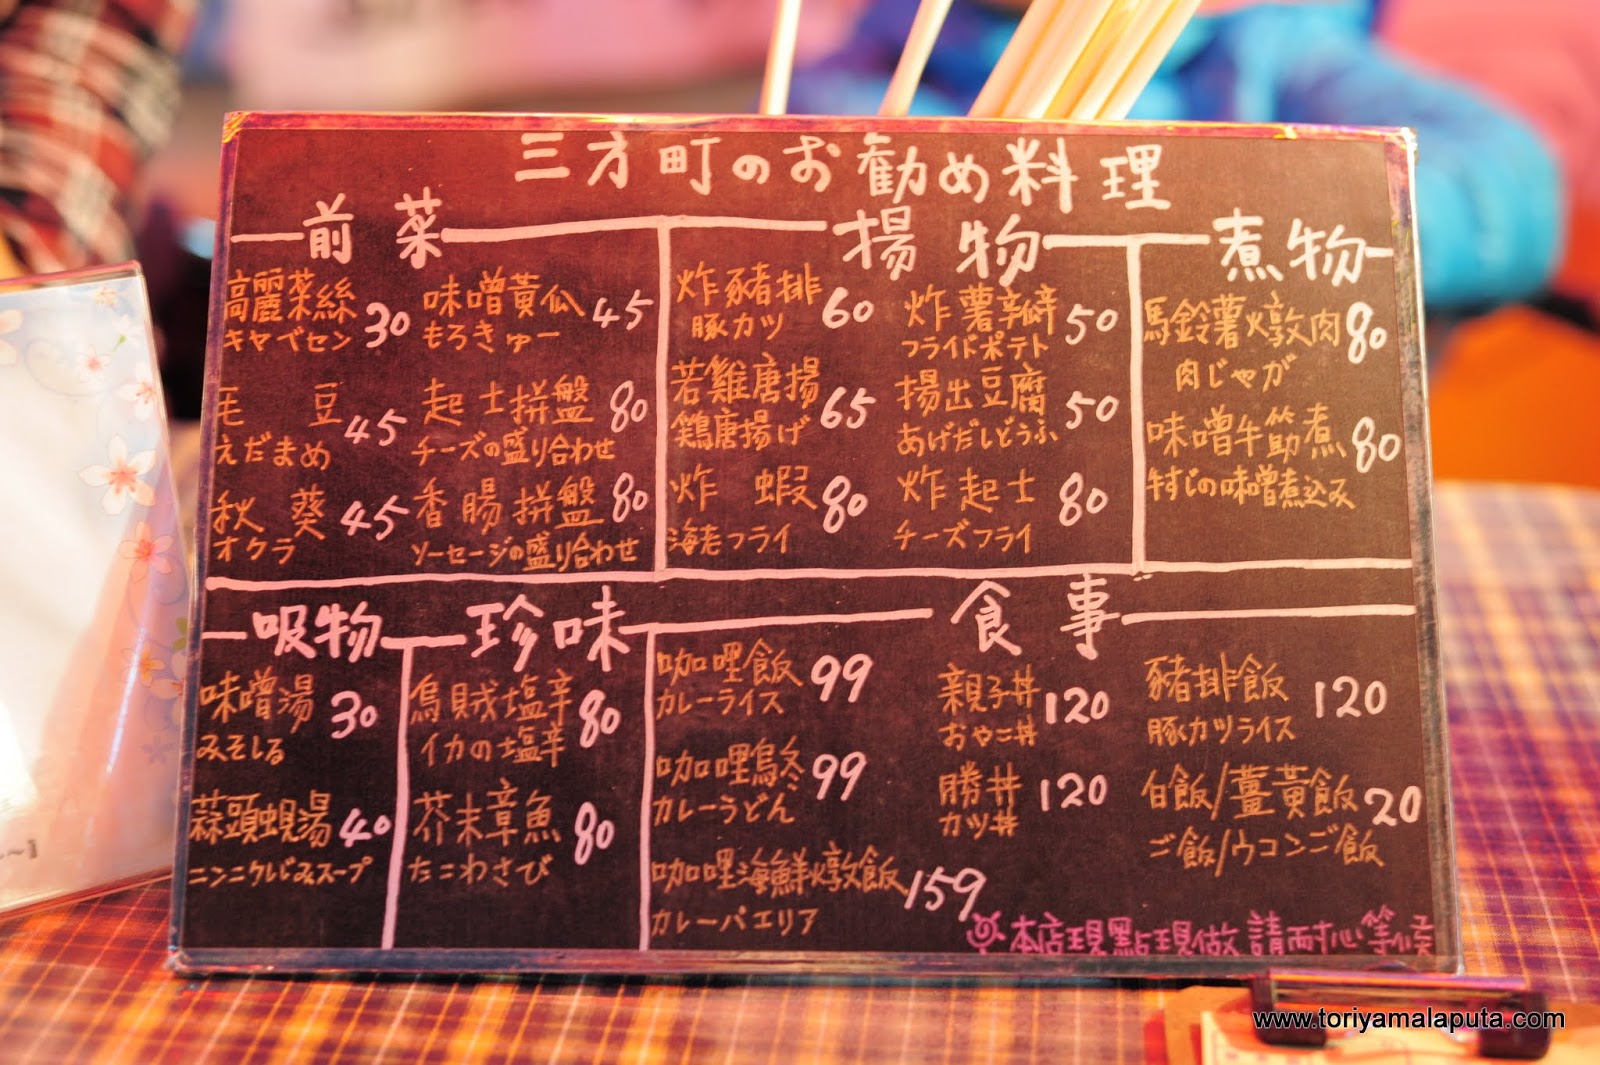 三才町のお勧め料理
前菜
高麗菜絲 30
キャベセン
味噌黃瓜 45
もろきゅー
毛豆 45
えだまめ
起士拼盤 80
チーズの盛り合わせ
秋葵 45
オクラ
香腸拼盤 80
ソーセージの盛り合わせ
揚物
炸豬排 60
豚カツ
炸薯瓣 50
フライドポテト
若雞唐揚 65
鶏唐揚げ
揚出豆腐 50
あげだしどうふ
炸蝦 80
海老フライ
炸起士 80
チーズフライ
煮物
馬鈴薯燉肉 80
肉じゃが
味噌牛筋煮 80
牛すじの味噌煮込み
吸物
味噌湯 30
みそしる
蒜頭蜆湯 40
ニンニクしじみスープ
珍味
烏賊塩辛 80
イカの塩辛
芥末章魚 80
たこわさび
食事
咖哩飯 99
カレーライス
親子丼 120
おやこ丼
豬排飯 120
豚カツライス
咖哩烏冬 99
カレーうどん
勝丼 120
カツ丼
白飯/薑黃飯 20
ご飯/ウコンご飯
咖哩海鮮燉飯 159
カレーパエリア
本店現點現做 請耐心等候
www.toriyamalaputa.com